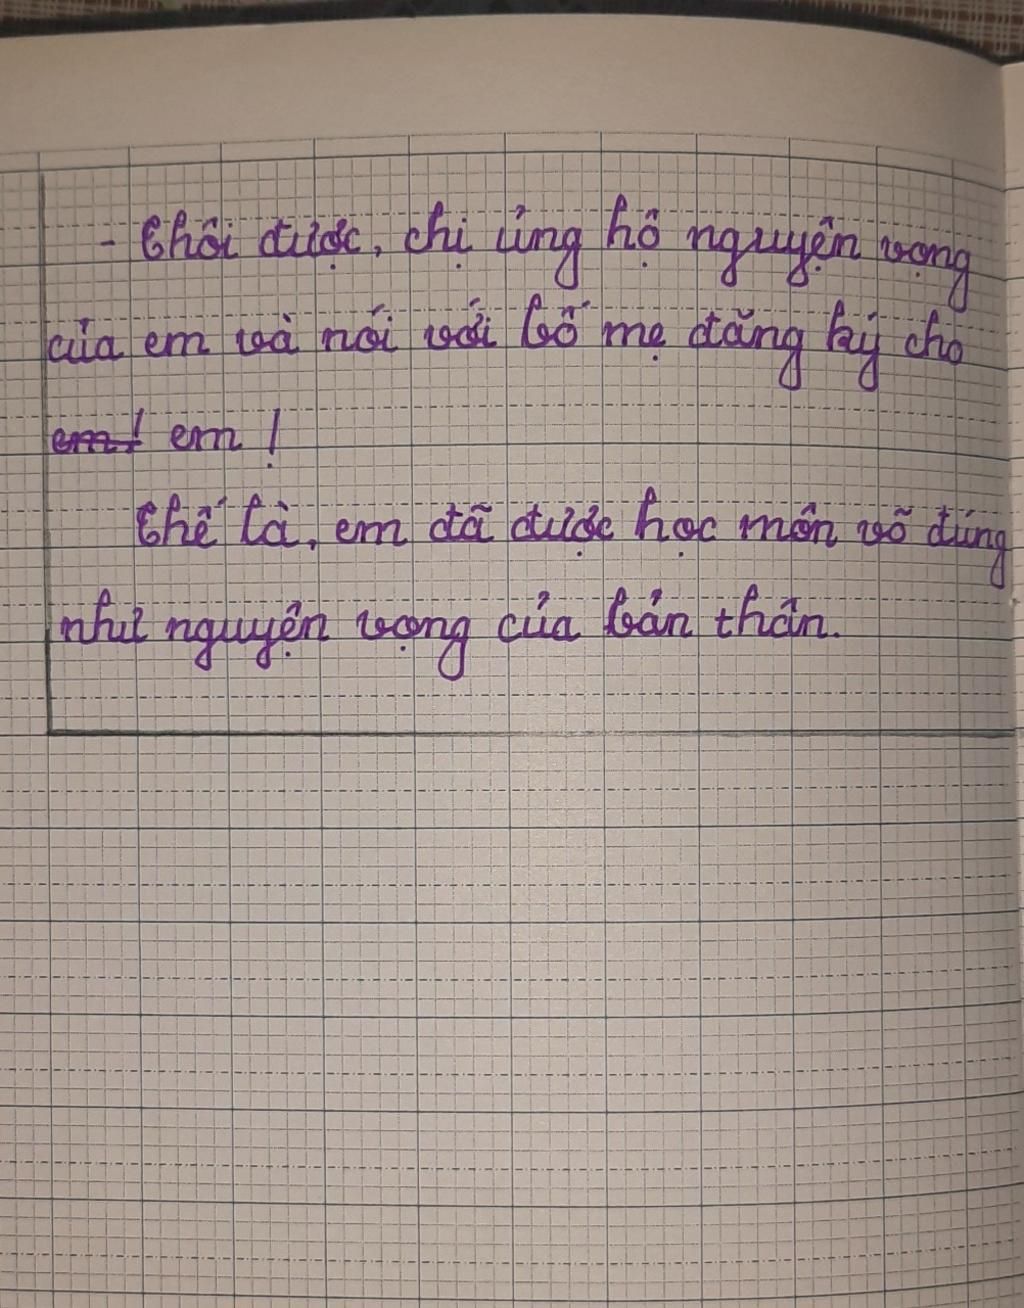 - Thôi được, chị ủng hộ nguyện vọng
của em và nói với bố mẹ đăng ký cho
em! em!
Thế là, em đã được học môn võ đúng
như nguyện vọng của bản thân.